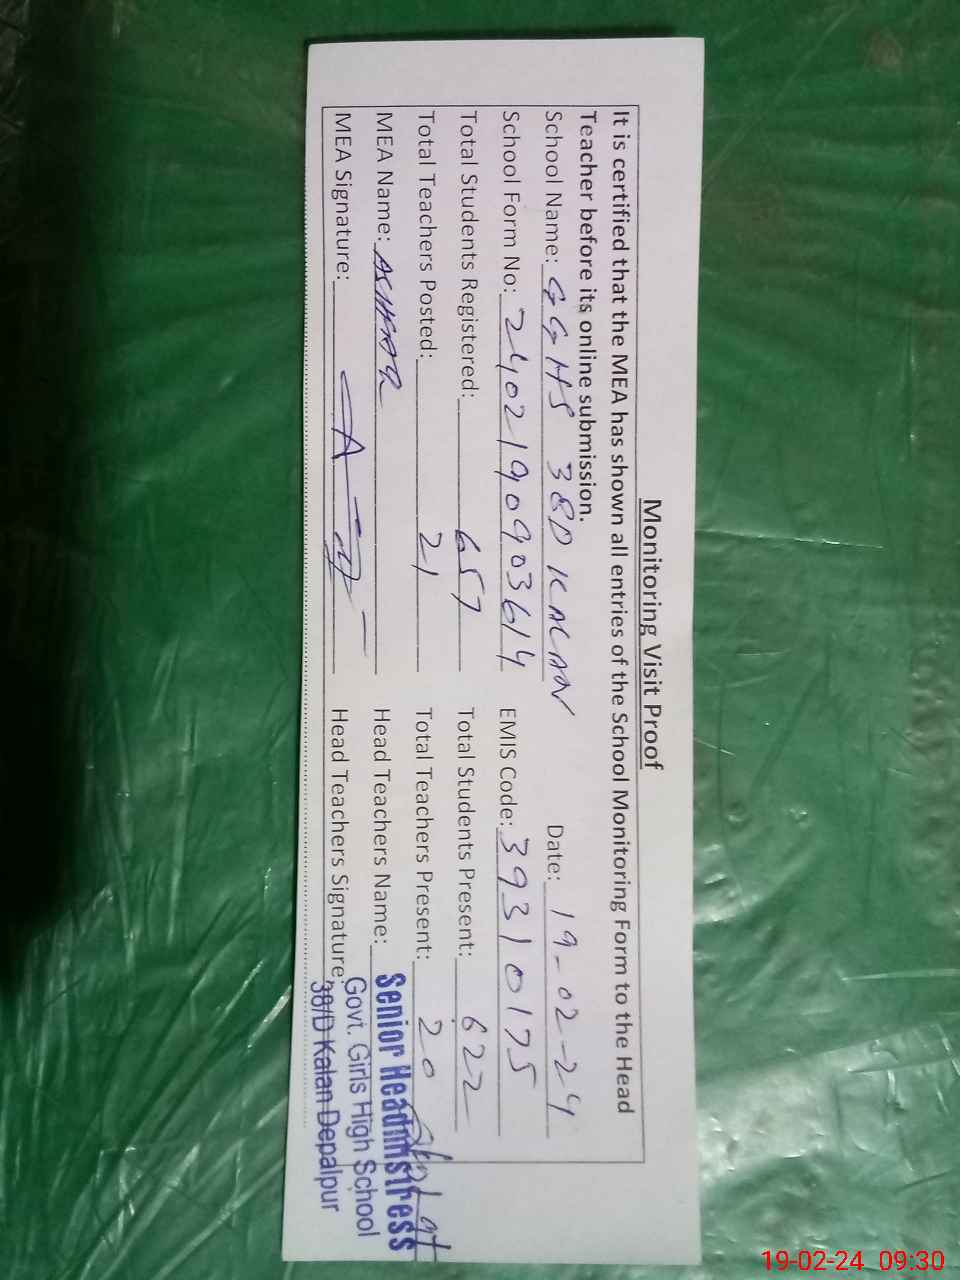 Monitoring Visit Proof
It is certified that the MEA has shown all entries of the School Monitoring Form to the Head
Teacher before its online submission.
School Name: GGHS 38D KALAN Date: 19-02-24
School Form No: 24021909903614 EMIS Code: 39310175
Total Students Registered: 657 Total Students Present: 622
Total Teachers Posted: 21 Total Teachers Present: 20
MEA Name: Head Teachers Name:
MEA Signature: Head Teachers Signature:
Senior Headmistress
Govt. Girls High School
38/D Kalan Depalpur
19-02-24 09:30